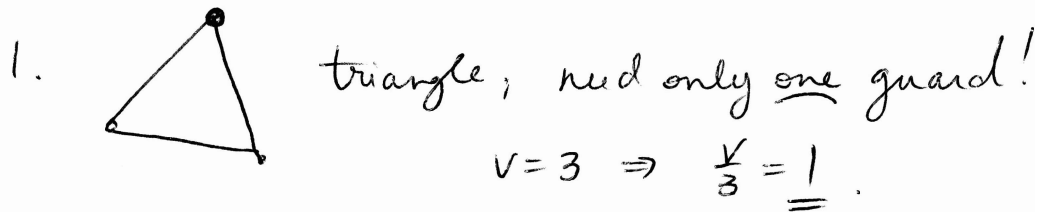 1. triangle, need only one guard!
V = 3 ⇒ V/3 = 1.